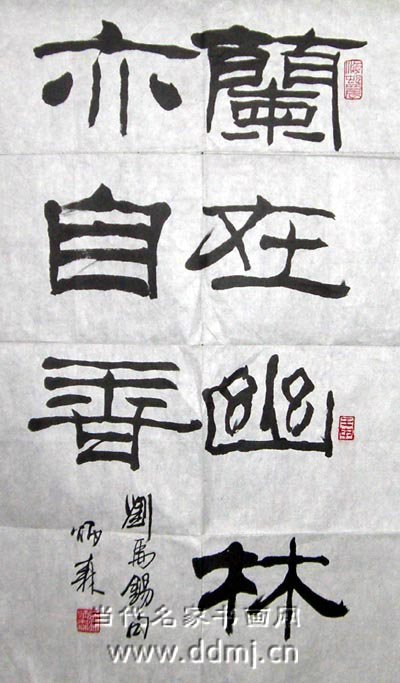 蘭在幽林
亦自香
劉禹錫句
炳森
当代名家书画网
www.ddmj.cn